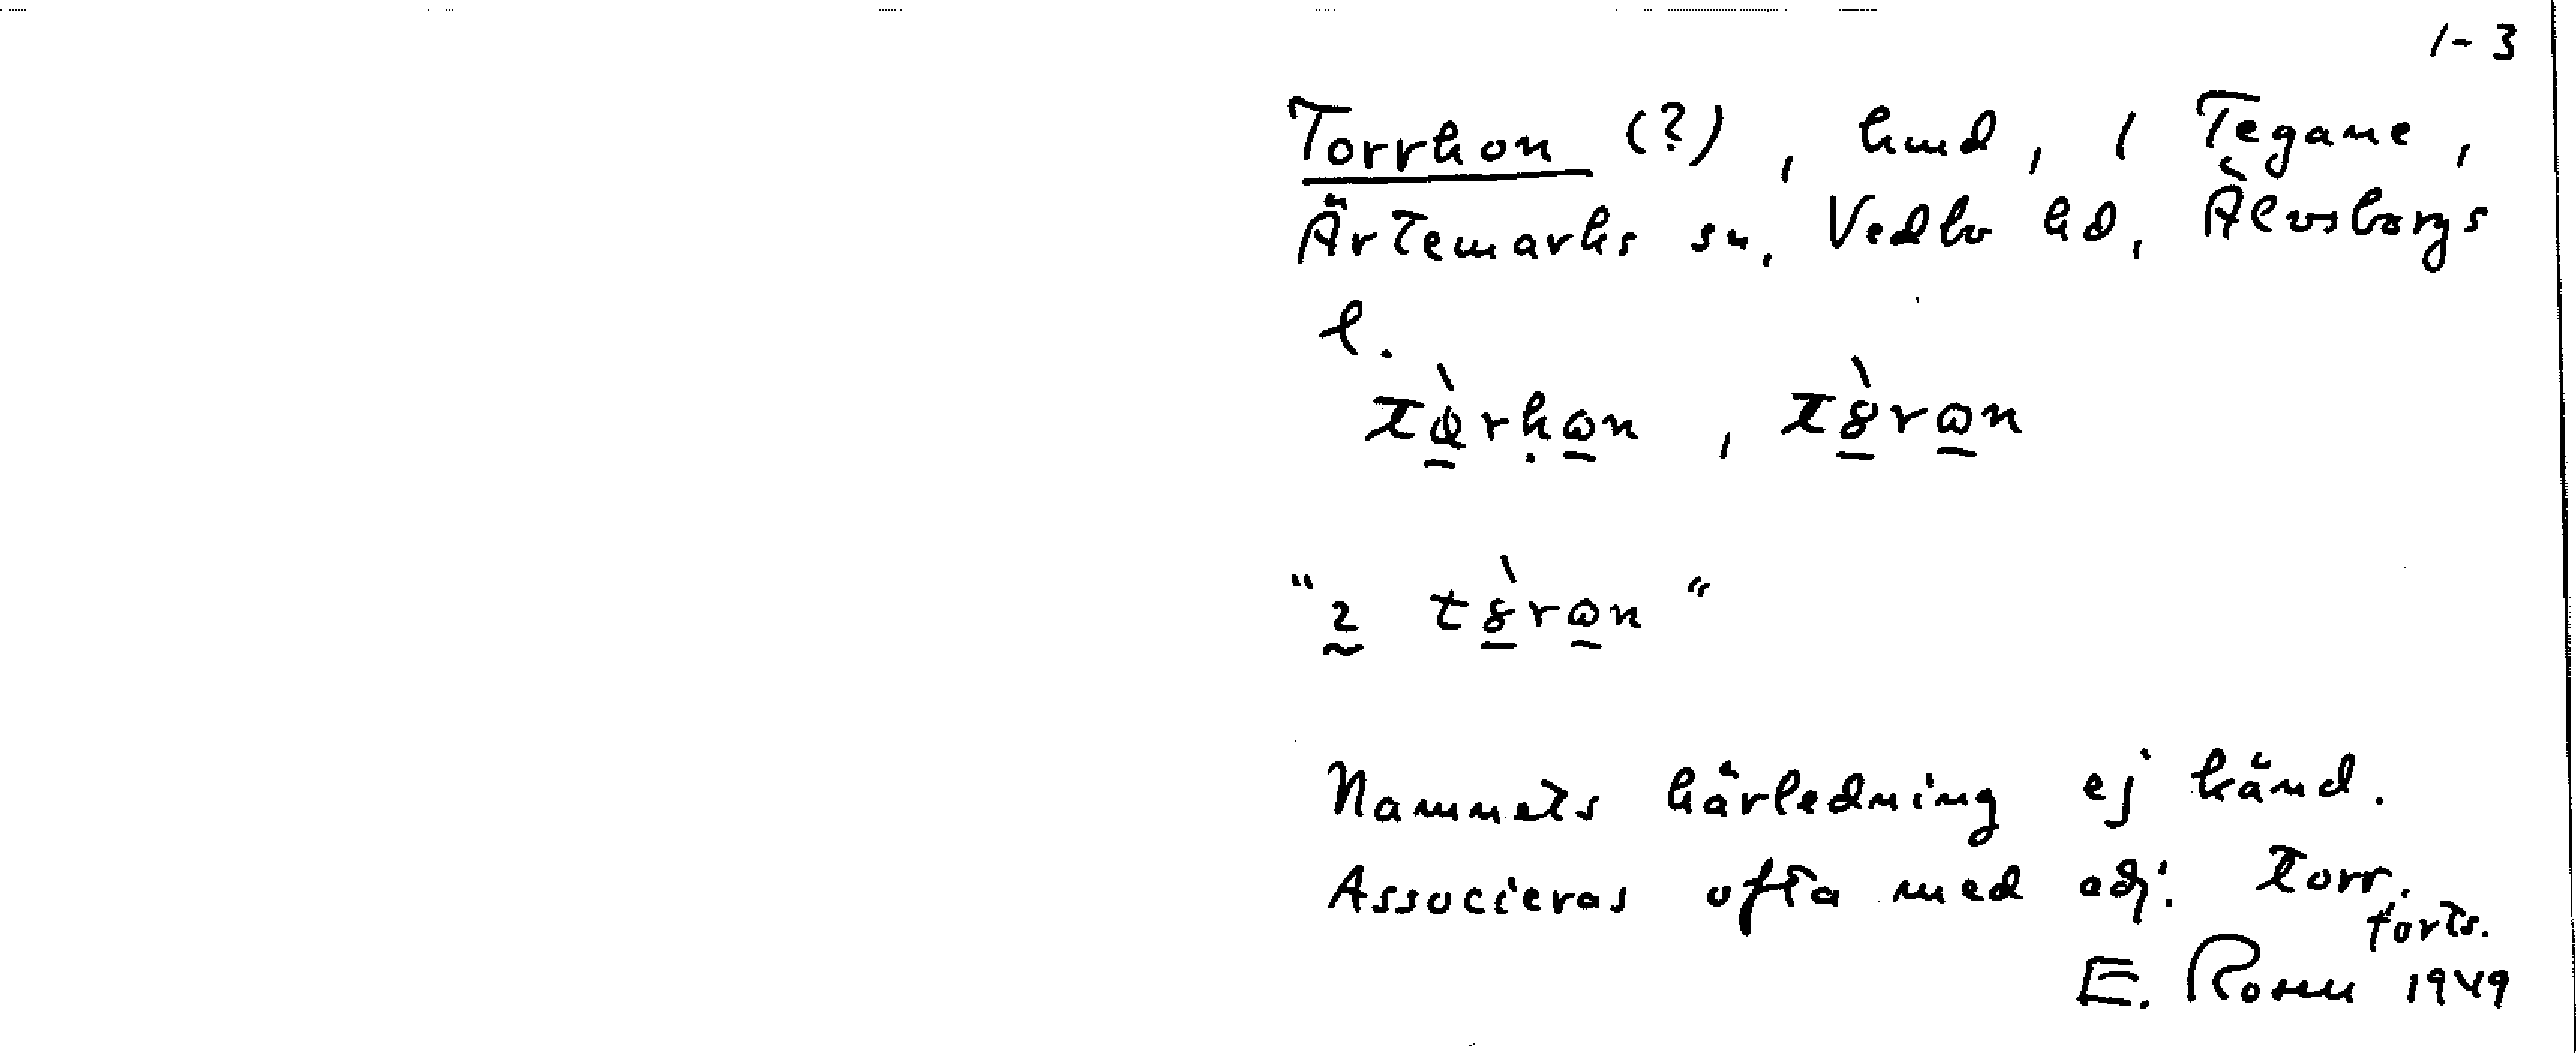 1-3
Torrhon (?), hmd, i Tegane,
Ärtemarks sn, Vedbo hd, Älvsborgs
l.
"
Namnets härledning ej känd.
Associeras ofta med adj. torr.
forts.
E. Rosen 1949